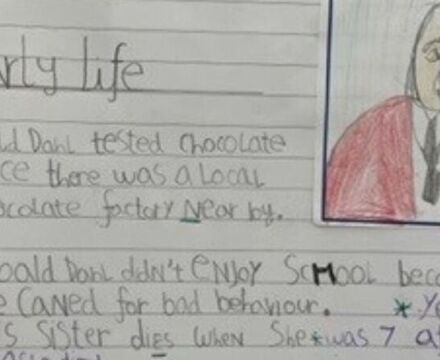 rly life
ld Dahl tested chocolate
ce there was a local
ocolate factory Near by.
oald Dahl ddn't ENJOY School beca
e Caned for bad behaviour. * Ye
s Sister dies when She * was 7 a